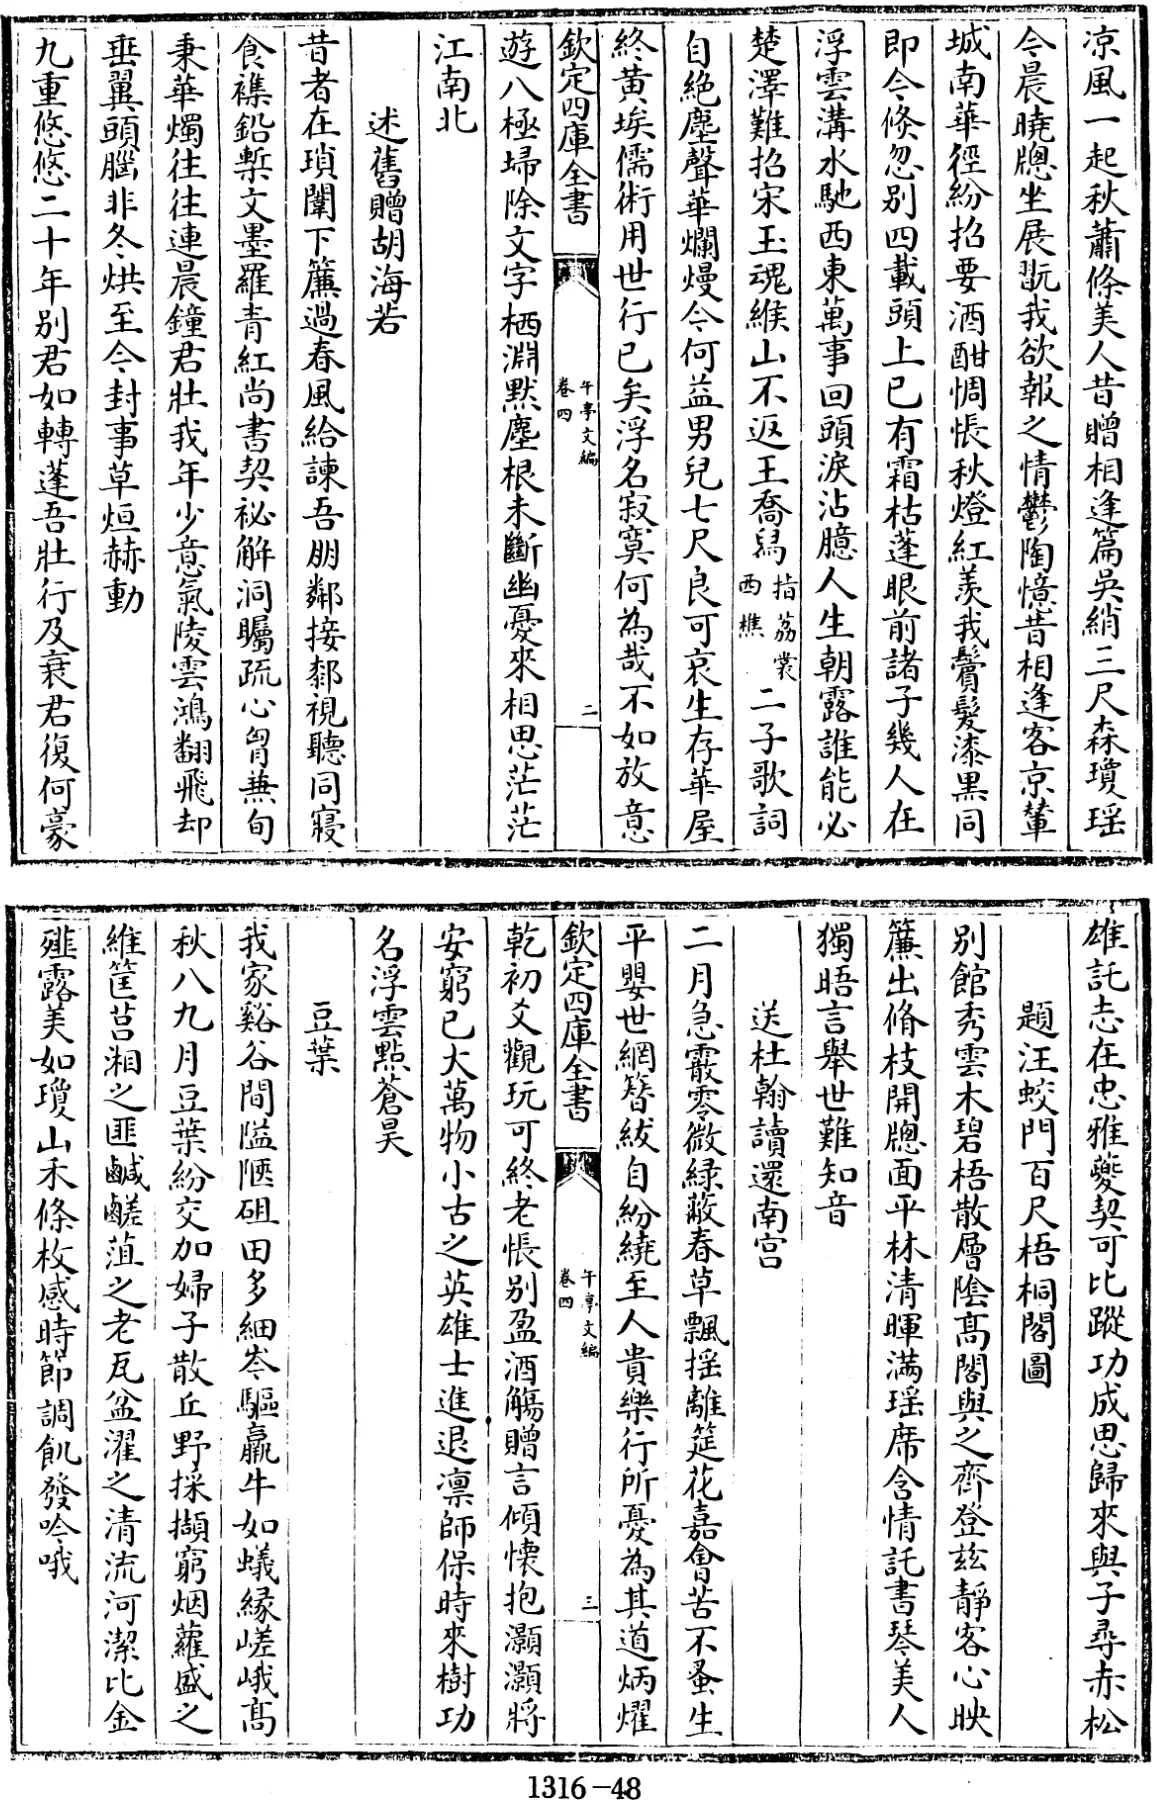 凉風一起秋蕭條美人昔贈相逢篇吳綃三尺森瓊瑶
今晨曉牕坐展翫我欲報之情鬱陶憶昔相逢客京輦
城南華徑紛招要酒酣惆悵秋燈紅羡我鬢髮漆黒同
即今倐忽别四載頭上已有霜枯蓬眼前諸子幾人在
浮雲溝水馳西東萬事回頭淚沾臆人生朝露誰能必
楚澤難招宋玉魂緱山不返王喬舄指荔裳西樵二子歌詞
自絶塵聲華爛熳今何益男兒七尺良可哀生存華屋
終黄埃儒術用世行已矣浮名寂寞何為哉不如放意
欽定四庫全書 午亭文編 卷四 二
遊八極埽除文字栖淵黙塵根未斷幽憂來相思茫茫
江南北
述舊贈胡海若
昔者在瑣闈下簾過春風給諫吾朋鄰接鄰視聽同寢
食襍鉛槧文墨羅青紅尚書契祕解洞矚疏心胷兼旬
秉華燭往往連晨鐘君壯我年少意氣陵雲鴻翻飛却
垂翼頭腦非冬烘至今封事草烜赫動
九重悠悠二十年别君如轉蓬吾壯行及衰君復何豪
雄託志在忠雅夔契可比蹤功成思歸來與子尋赤松
題汪蛟門百尺梧桐閣圖
别館秀雲木碧梧散層隂髙閣與之齊登兹靜客心映
簾出脩枝開牕面平林清暉滿瑶席含情託書琴美人
獨晤言舉世難知音
送杜翰讀還南宫
二月急霰零微緑蔽春草飄揺離筵花嘉會苦不蚤生
平嬰世網簪紱自紛繞至人貴樂行所憂為其道炳燿
欽定四庫全書 午亭文編 卷四 三
乾初爻觀玩可終老悵别盈酒觴贈言傾懷抱灝灝將
安窮已大萬物小古之英雄士進退凛師保時來樹功
名浮雲點蒼昊
豆葉
我家谿谷間隘陿砠田多細岑驅羸牛如蟻縁嵯峨髙
秋八九月豆葉紛交加婦子散丘野採擷窮烟蘿盛之
維筐莒湘之匪鹹鹺菹之老瓦盆濯之清流河潔比金
薤露美如瓊山禾條枚感時節調飢發吟哦
1316-48